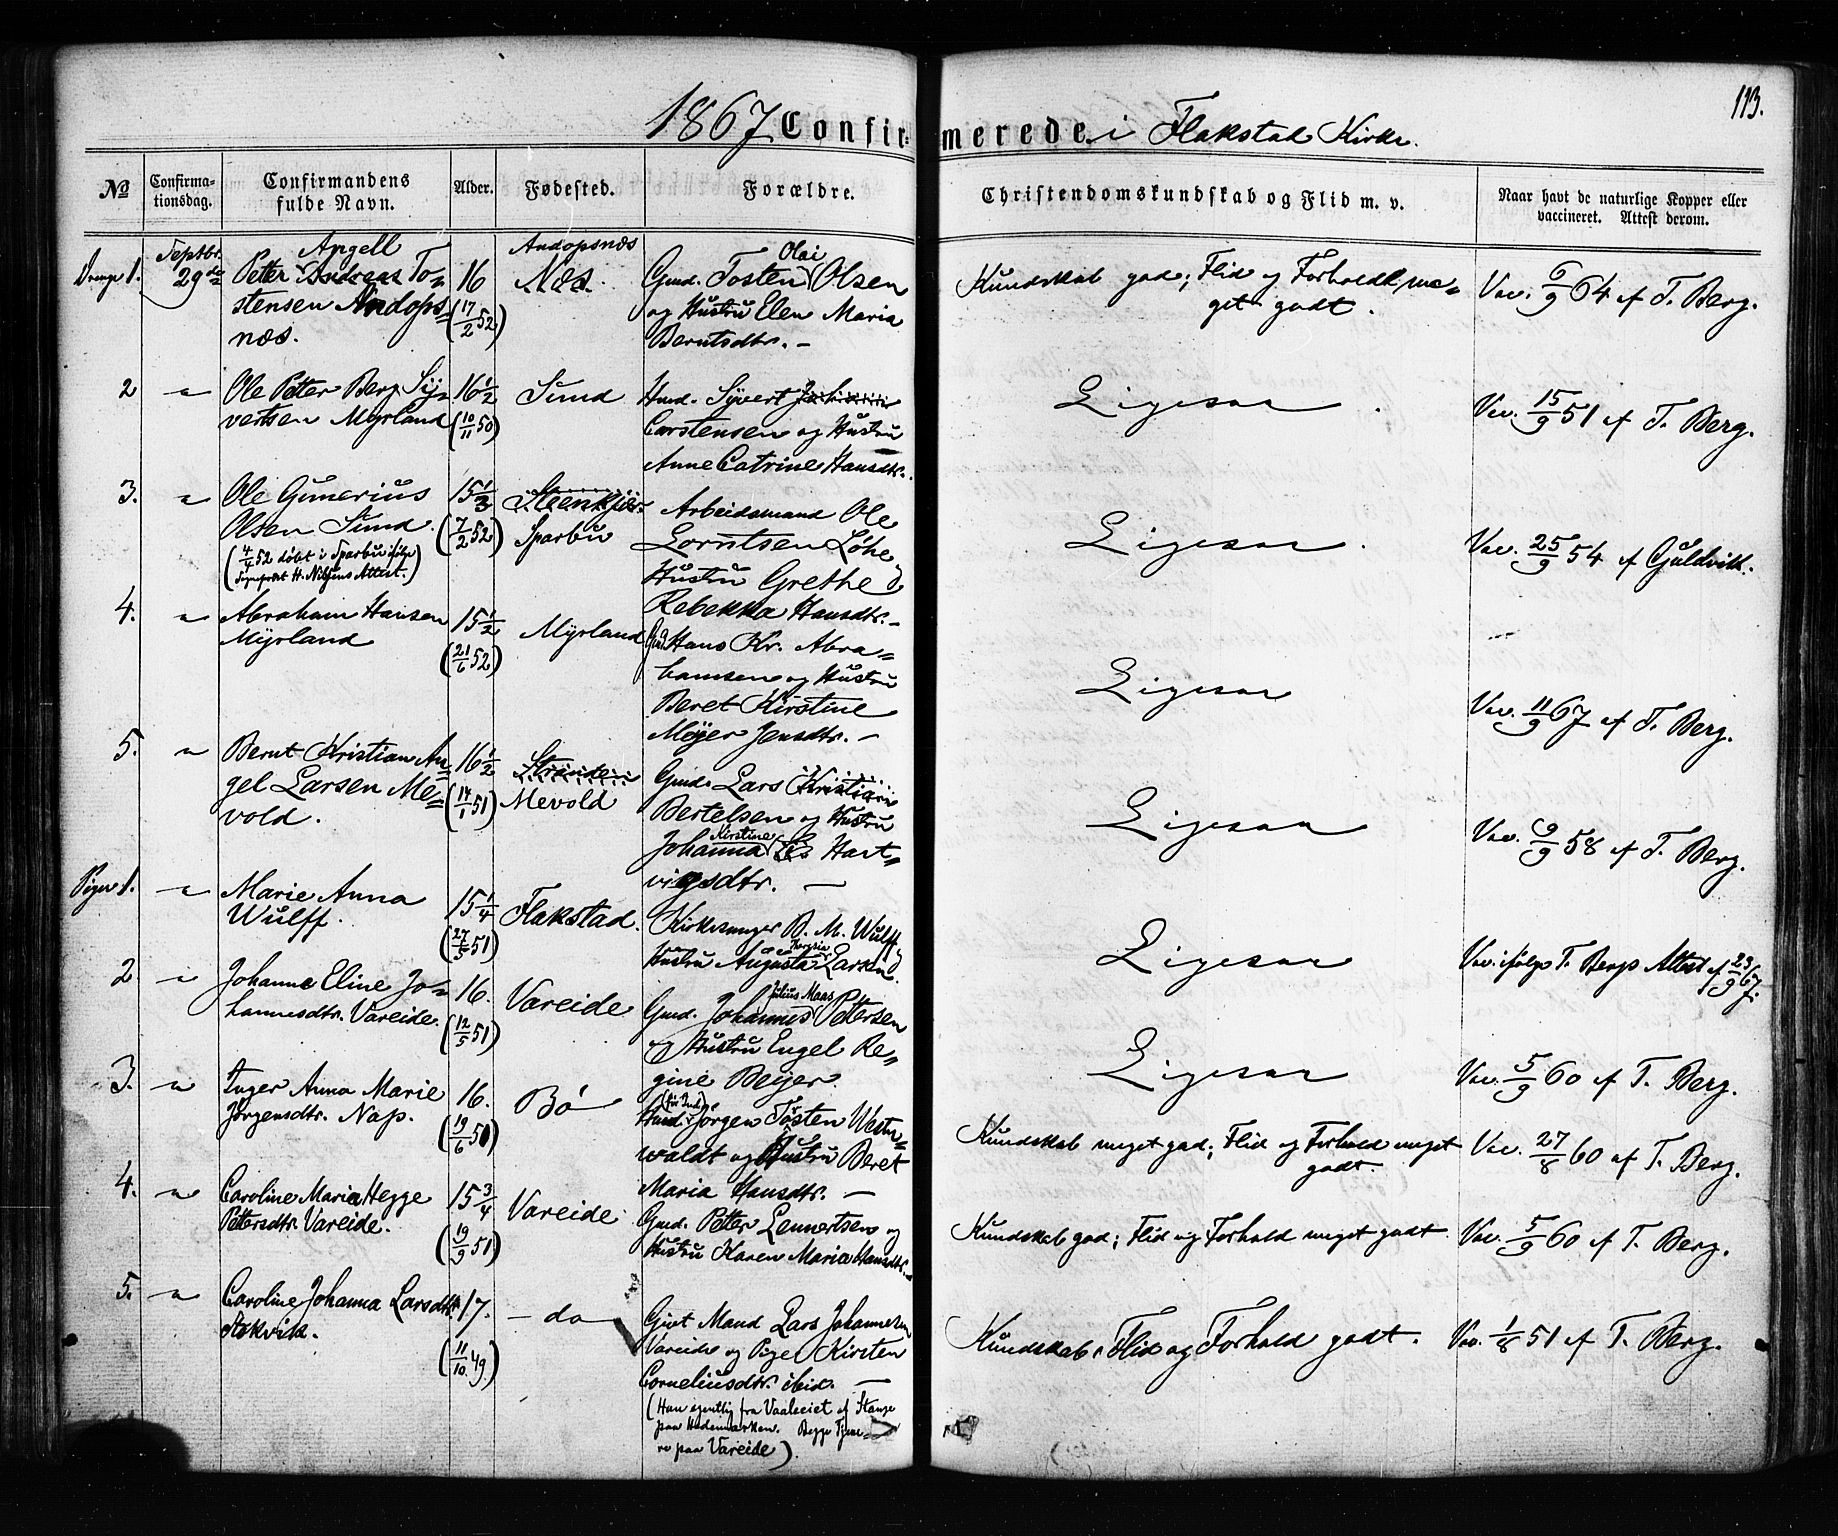 113.
1867 Confirmerede i Flakstad Kirke.
№ Confirmationsdag. Confirmandens fulde Navn. Alder. Fødested. Forældre. Christendomskundskab og Flid m. v. Naar havt de naturlige Kopper eller vaccineret. Attest derom.
Drenge 1.
Septbr.
29de
Angell
Petter Andreas To-
stensen Andops-
næs.
16
(17/2 52)
Andopsnæs
Næs.
Olai
Gmd. Tosten Olsen
og Hustru Elen Maria
Berntsdtr. —
Kundskab god; Flid og Forhold me-
get godt.
Vac. 6/9 64 af T. Berg.
2
"
Ole Petter Berg Sy-
vertsen Myrland
16 1/2
(10/11 50)
Sund
Hmd. Syvert
Carstensen og Hustru
Anne Catrine Hansdtr.
Ligesaa
Vac. 15/9 51 af T. Berg.
3.
"
Ole Gunerius
Olsen Sund
(4/4 52 døbt i Sparbu ifølge
Sognepræst H. Nilsens Attest.)
15 1/3
(7/2 52)
Steenkjær
Sparbu
Arbeidsmand Ole
Lorntsen Løhe
Hustru Grethe
Rebekka Hansdtr. —
Ligesaa
Vac. 25/9 54 af Guldvik.
4.
"
Abraham Hansen
Myrland
15 1/2
(21/6 52)
Myrland
Gmd. Hans Kr. Abra-
hamsen og Hustru
Beret Kirstine
Meyer Jensdtr. —
Ligesaa
Vac. 11/9 67 af T. Berg.
5.
"
Bernt Kristian An-
gel Larsen Me-
vold.
16 1/2
(14/1 51)
Strande
Mevold
Gmd. Lars Kristian
Bertelsen og Hustru
Kirstine
Johanna Hart-
vigsdtr. —
Ligesaa
Vac. 9/9 58 af T. Berg.
Piger 1.
"
Marie Anna
Wulff.
15 1/4
(27/5 51)
Flakstad.
Kirkesanger B. M. Wulff
Theresia
Hustru Augusta Larsen
Ligesaa
Vac. ifølge T. Bergs Attest af 23/9 67.
2
"
Johanne Eline Jo-
hannesdtr. Vareide.
16.
(12/5 51)
Vareide
Julius Maas
Gmd. Johannes Pettersen
og Hustru Engel Re-
gine Beyer
Ligesaa
Vac. 5/9 60 af T. Berg.
3.
"
Inger Anna Marie
Jørgensdtr. Nap.
16.
(19/6 50)
Bø
Hmd. Jørgen Tosten West-
waldt og Hustru Beret
Maria Hansdtr. —
Kundskab meget god; Flid og Forhold meget
godt.
Vac. 27/8 60 af T. Berg.
4.
"
Caroline Maria Hegge
Pettersdtr. Vareide.
15 3/4
(19/9 51)
Vareide
Gmd. Petter Lennertsen og
Hustru Karen Maria Hansdtr.
Kundskab god; Flid og Forhold meget godt
Vac. 5/9 60 af T. Berg.
5.
"
Caroline Johanna Larsdtr.
Stokvik.
17.
(11/10 49)
— do
Givt Mand Lars Johannesen
Vareide og Pige Kirsten
Corneliusdtr. ibid. —
(Han egentlig fra Vaaleeiet af Stange
paa Hedemarken. Begge Tjene-
re paa Vareide)
Kundskab, Flid og Forhold godt.
Vac. 1/8 51 af T. Berg.